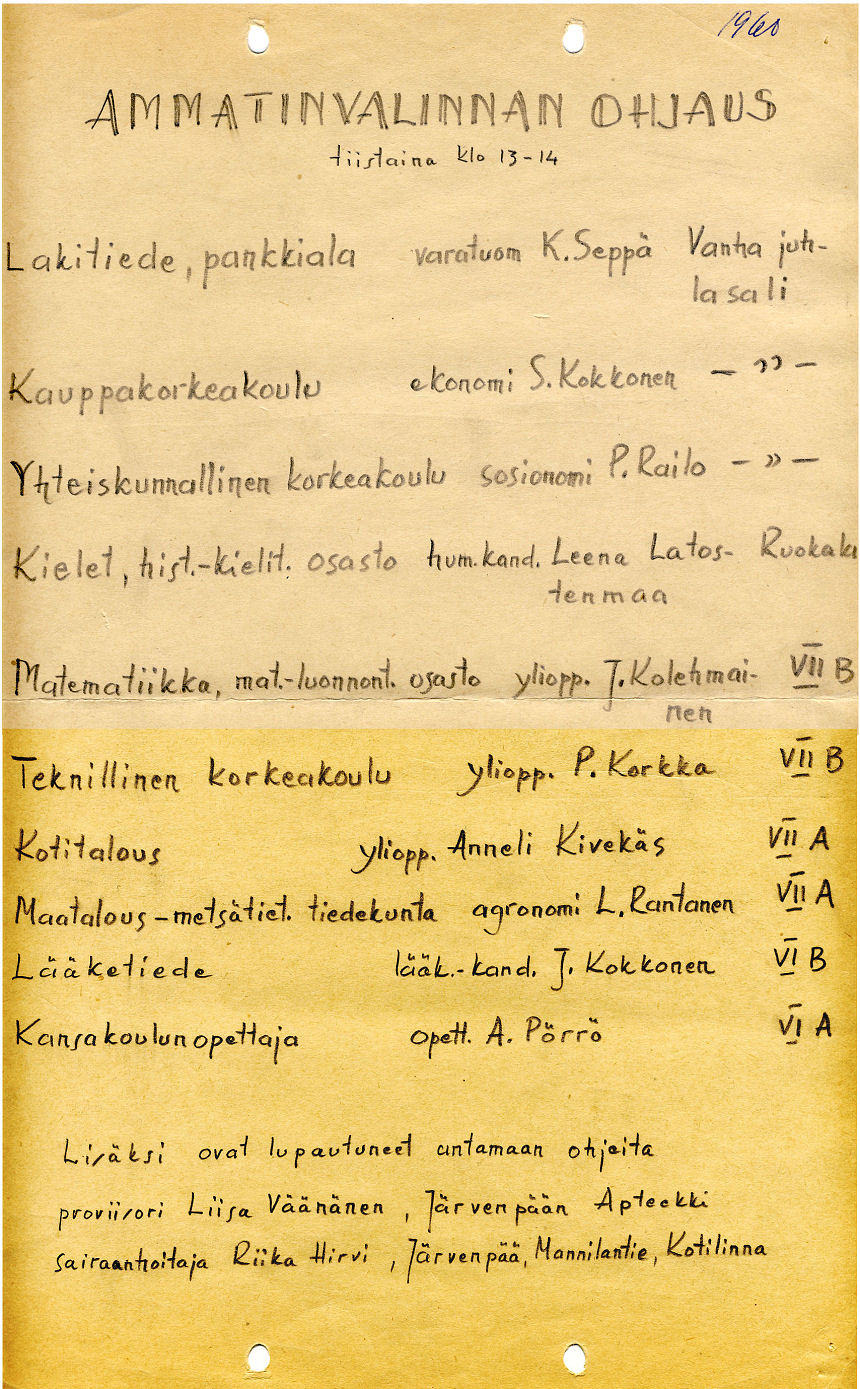 1960
AMMATINVALINNAN OHJAUS
tiistaina klo 13-14
Lakitiede, pankkiala varatuom K. Seppä Vanha juh-
lasali
Kauppakorkeakoulu ekonomi S. Kokkonen - " -
Yhteiskunnallinen korkeakoulu sosionomi P. Railo - " -
Kielet, hist.-kielit. osasto hum.kand. Leena Latos- Ruokala
tenmaa
Matematiikka, mat.-luonnont. osasto yliopp. J. Kolehmai- VII B
nen
Teknillinen korkeakoulu yliopp. P. Korkka VII B
Kotitalous yliopp. Anneli Kivekäs VII A
Maatalous-metsätiet. tiedekunta agronomi L. Rantanen VII A
Lääketiede lääk.-kand. J. Kokkonen VI B
Kansakoulunopettaja opett. A. Pörrö VI A
Lisäksi ovat lupautuneet antamaan ohjeita
proviisori Liisa Väänänen, Järvenpään Apteekki
sairaanhoitaja Riika Hirvi, Järvenpää, Mannilantie, Kotilinna